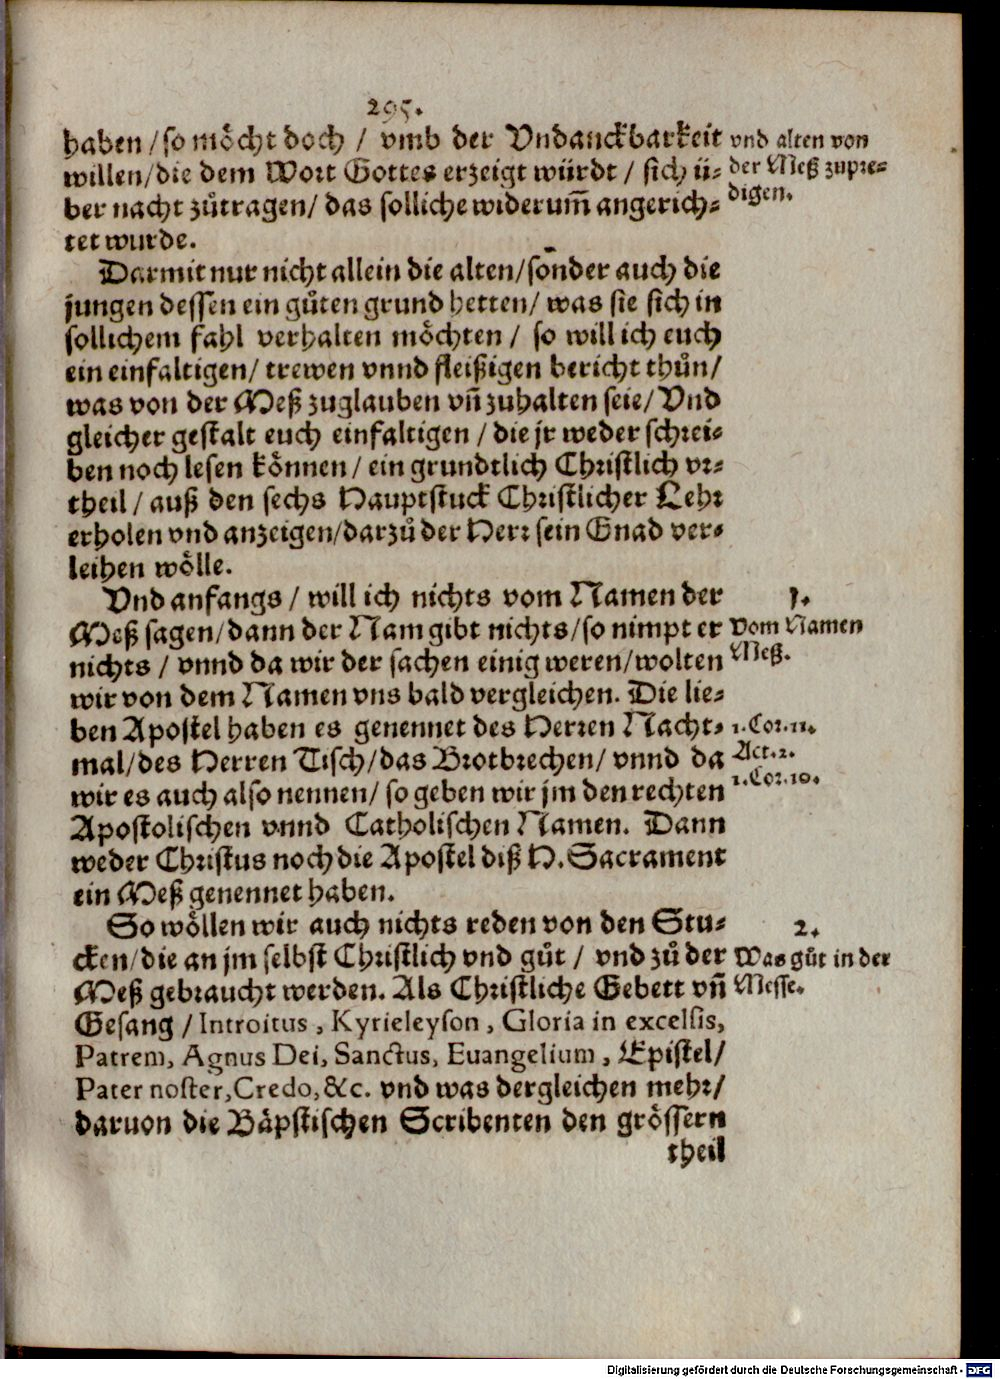 295.
haben / so möcht doch / vmb der Vndanckbarkeit
willen / die dem Wort Gottes erzeigt würdt / sich ü-
ber nacht zůtragen / das solliche widerum̃ angerich-
tet wurde.
vnd alten von
der Meß zupre-
digen.
Darmit nur nicht allein die alten / sonder auch die
jungen dessen ein gůten grund hetten / was sie sich in
sollichem fahl verhalten möchten / so will ich euch
ein einfaltigen / trewen vnnd fleißigen bericht thůn /
was von der Meß zuglauben vñ zuhalten seie / Vnd
gleicher gestalt euch einfaltigen / die jr weder schrei-
ben noch lesen können / ein grundtlich Christlich vr-
theil / auß den sechs Hauptstuck Christlicher Lehr
erholen vnd anzeigen / darzů der Herr sein Gnad ver-
leihen wölle.
Vnd anfangs / will ich nichts vom Namen der
Meß sagen / dann der Nam gibt nichts / so nimpt er
nichts / vnnd da wir der sachen einig weren / wolten
wir von dem Namen vns bald vergleichen. Die lie-
ben Apostel haben es genennet des Herren Nacht-
mal / des Herren Tisch / das Brotbrechen / vnnd da
wir es auch also nennen / so geben wir jm den rechten
Apostolischen vnnd Catholischen Namen. Dann
weder Christus noch die Apostel diß H. Sacrament
ein Meß genennet haben.
1.
Vom Namen
Meß.
1. Cor. 11.
Act. 2.
1. Cor. 10.
So wöllen wir auch nichts reden von den Stu-
cken / die an jm selbst Christlich vnd gůt / vnd zů der
Meß gebraucht werden. Als Christliche Gebett vñ
Gesang / Introitus, Kyrieleyson, Gloria in excelsis,
Patrem, Agnus Dei, Sanctus, Euangelium, Epistel /
Pater noster, Credo, &c. vnd was dergleichen mehr /
daruon die Bäpstischen Scribenten den grössern
theil
2.
Was gůt in der
Messe.
Digitalisierung gefördert durch die Deutsche Forschungsgemeinschaft - DFG